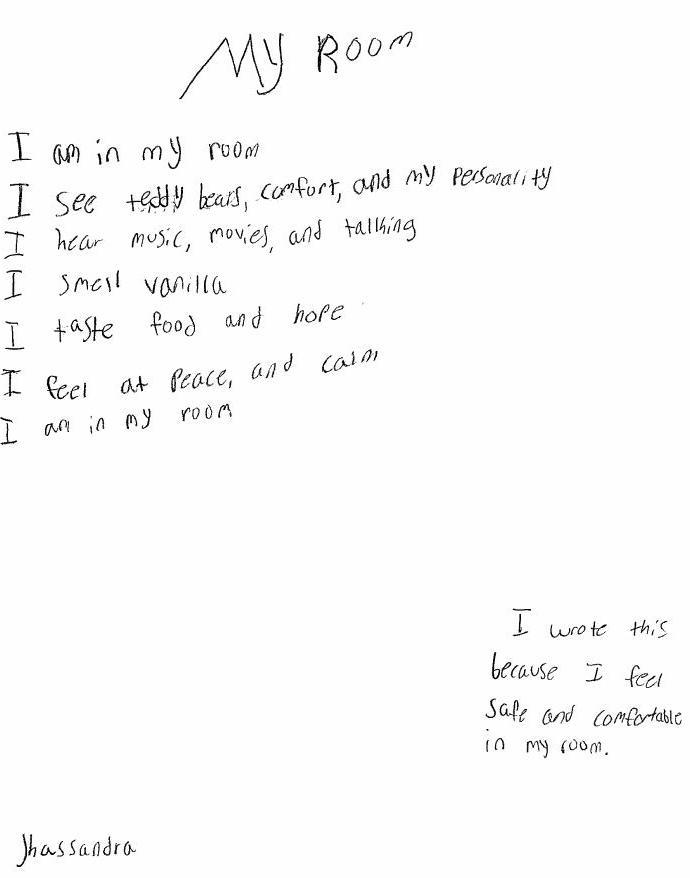 My Room
I am in my room
I see teddy bears, comfort, and my personality
I hear music, movies, and talking
I smell vanilla
I taste food and hope
I feel at peace, and calm
I am in my room
I wrote this
because I feel
safe and comfortable
in my room.
Jhassandra